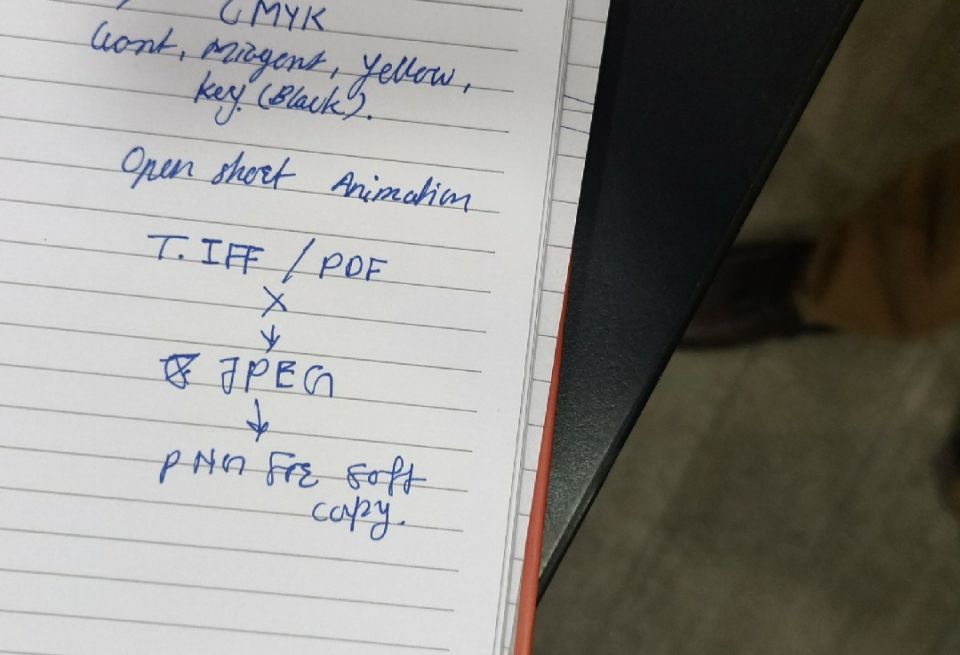 CMYK
Ciant, Miagent, Yellow,
Key (Black).
Open short Animation
T.IFF / PDF
X
↓
JPEG
↓
PNG For Soft
copy.